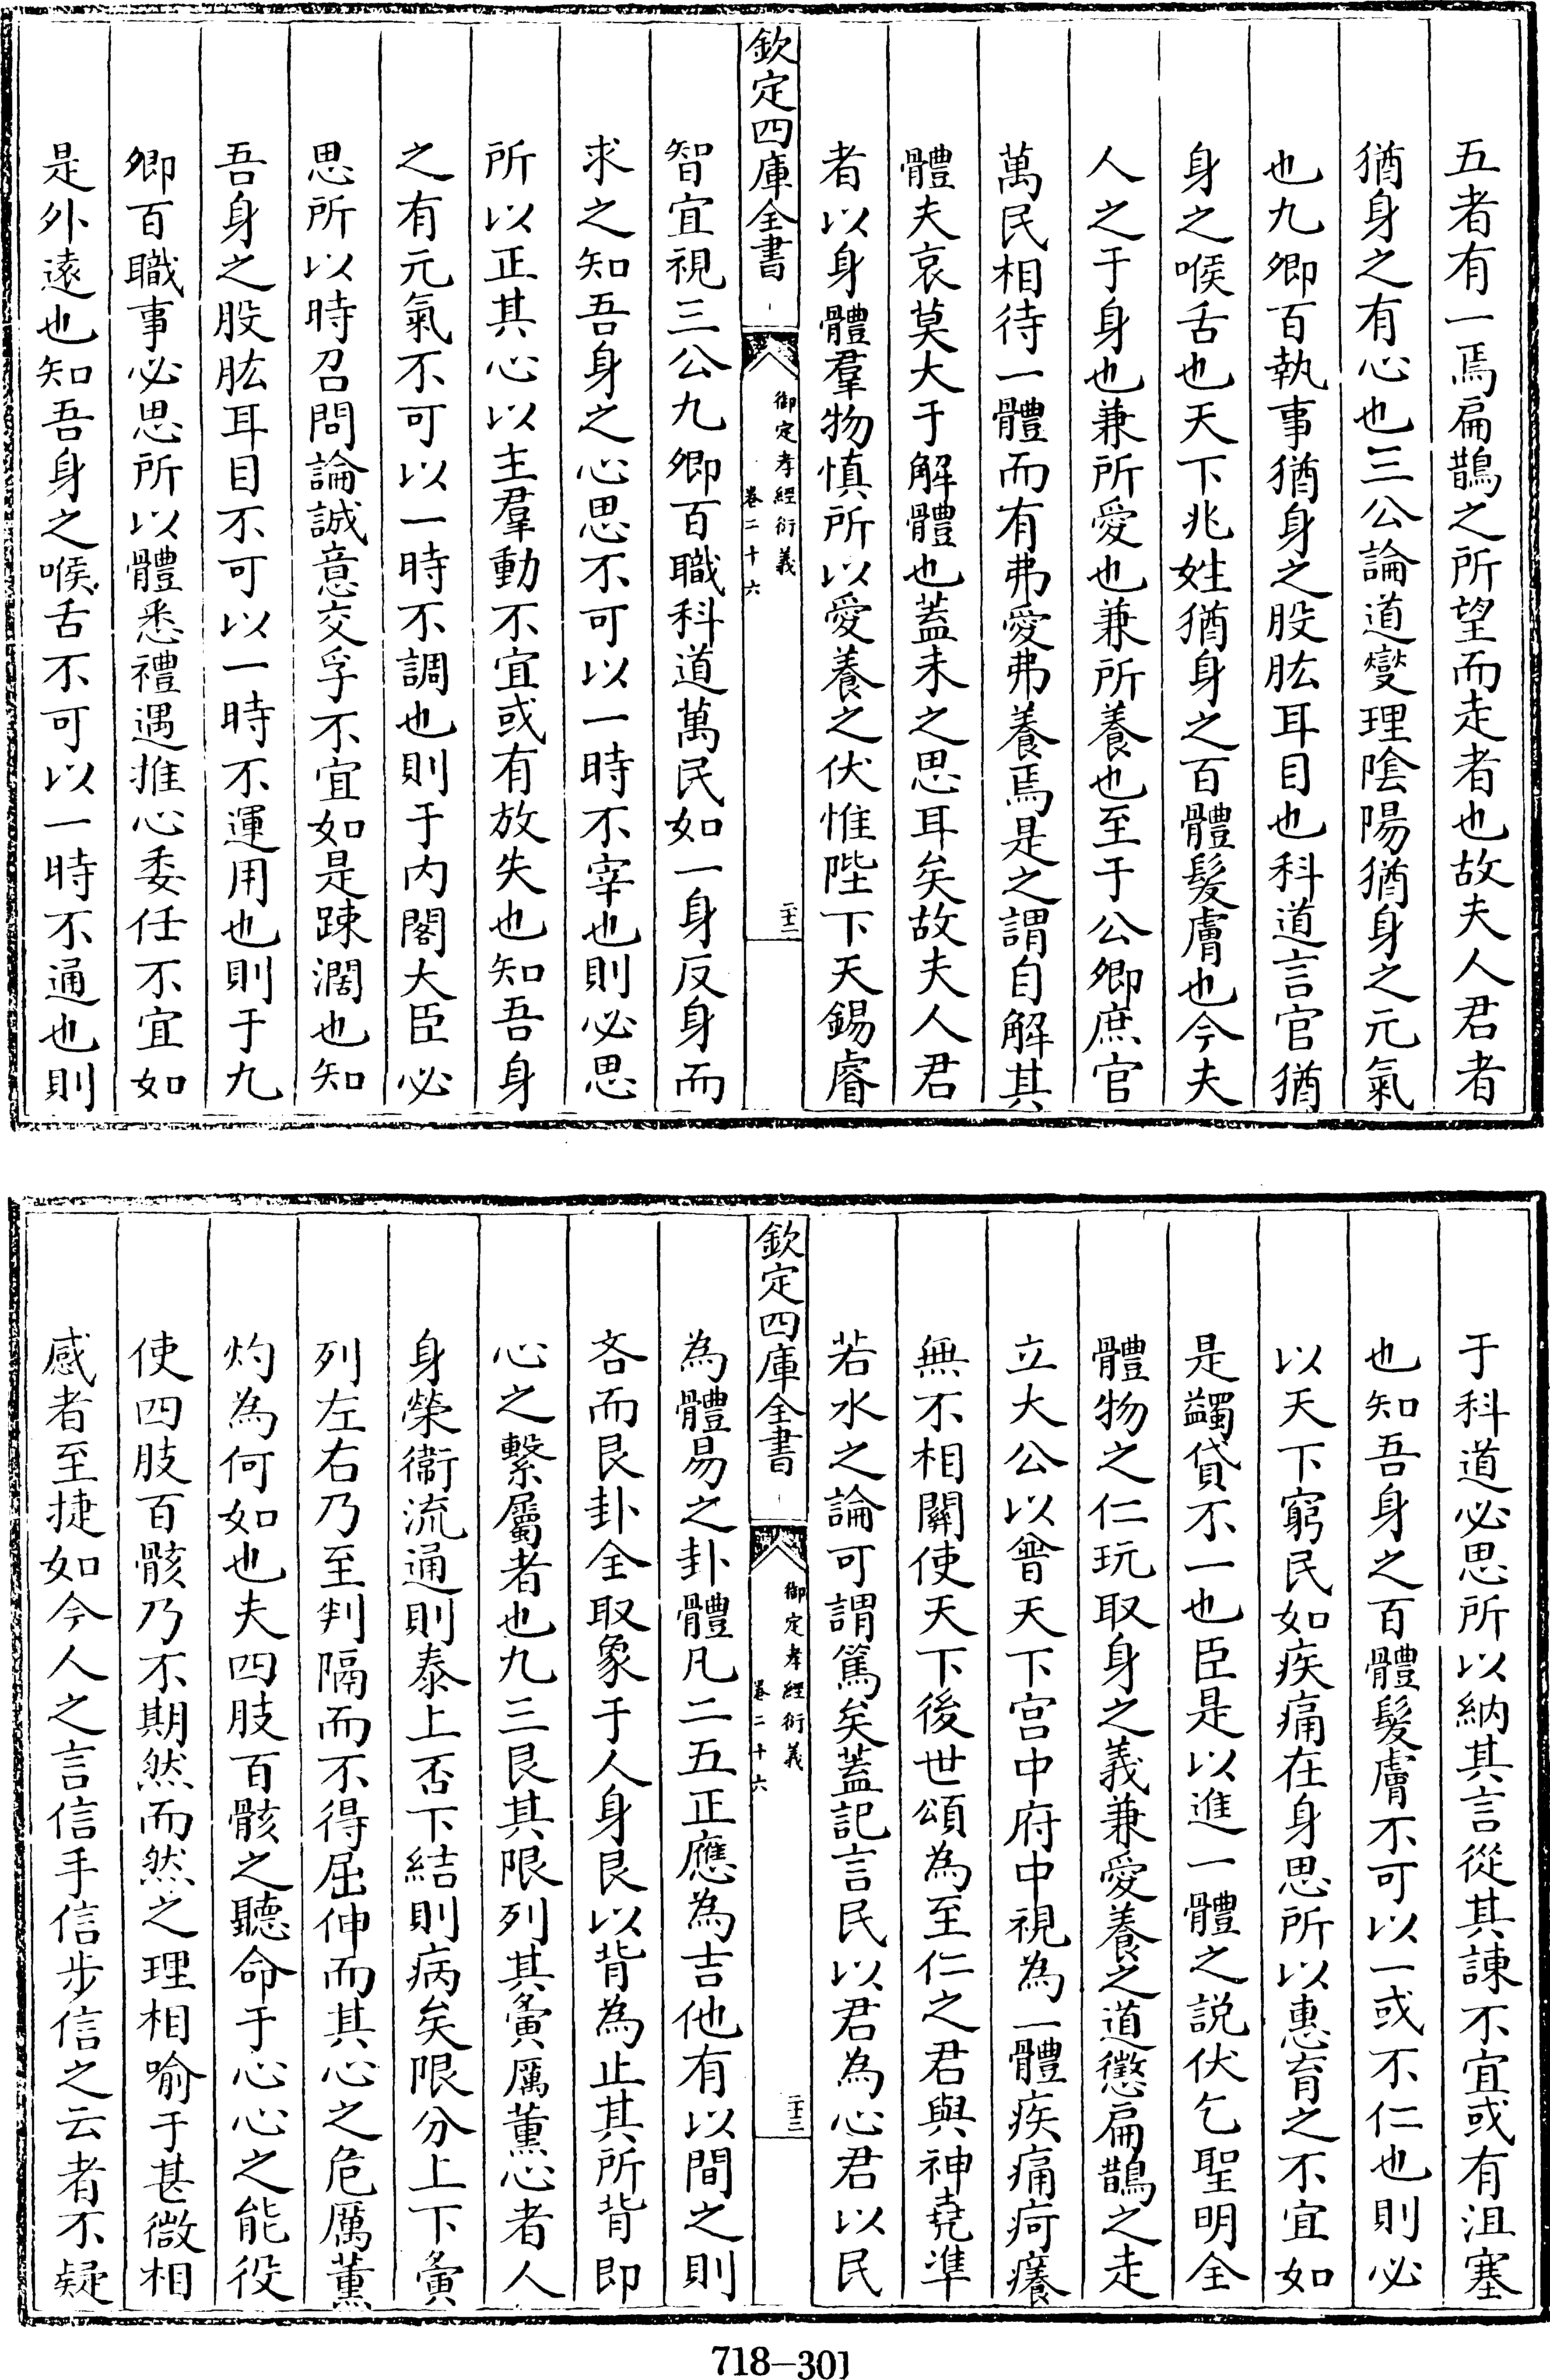 五者有一焉扁鵲之所望而走者也故夫人君者
猶身之有心也三公論道燮理陰陽猶身之元氣
也九卿百執事猶身之股肱耳目也科道言官猶
身之喉舌也天下兆姓猶身之百體髮膚也今夫
人之于身也兼所愛也兼所養也至于公卿庶官
萬民相待一體而有弗愛弗養焉是之謂自解其
體夫哀莫大于解體也蓋未之思耳矣故夫人君
者以身體羣物慎所以愛養之伏惟陛下天錫睿
欽定四庫全書
御定孝經衍義
卷二十六
二十二
智宜視三公九卿百職科道萬民如一身反身而
求之知吾身之心思不可以一時不宰也則必思
所以正其心以主羣動不宜或有放失也知吾身
之有元氣不可以一時不調也則于内閣大臣必
思所以時召問論誠意交孚不宜如是踈濶也知
吾身之股肱耳目不可以一時不運用也則于九
卿百職事必思所以體悉禮遇推心委任不宜如
是外逺也知吾身之喉舌不可以一時不通也則
于科道必思所以納其言從其諫不宜或有沮塞
也知吾身之百體髮膚不可以一或不仁也則必
以天下窮民如疾痛在身思所以惠育之不宜如
是蠲貸不一也臣是以進一體之説伏乞聖明全
體物之仁玩取身之義兼愛養之道懲扁鵲之走
立大公以㑹天下宫中府中視為一體疾痛疴癢
無不相關使天下後世頌為至仁之君與神堯準
若水之論可謂篤矣蓋記言民以君為心君以民
欽定四庫全書
御定孝經衍義
卷二十六
二十三
為體易之卦體凡二五正應為吉他有以間之則
吝而艮卦全取象于人身艮以背為止其所背即
心之繫屬者也九三艮其限列其夤厲薰心者人
身榮衞流通則泰上否下結則病矣限分上下夤
列左右乃至判隔而不得屈伸而其心之危厲薰
灼為何如也夫四肢百骸之聽命于心心之能役
使四肢百骸乃不期然而然之理相喻于甚微相
感者至捷如今人之言信手信步信之云者不疑
718-301